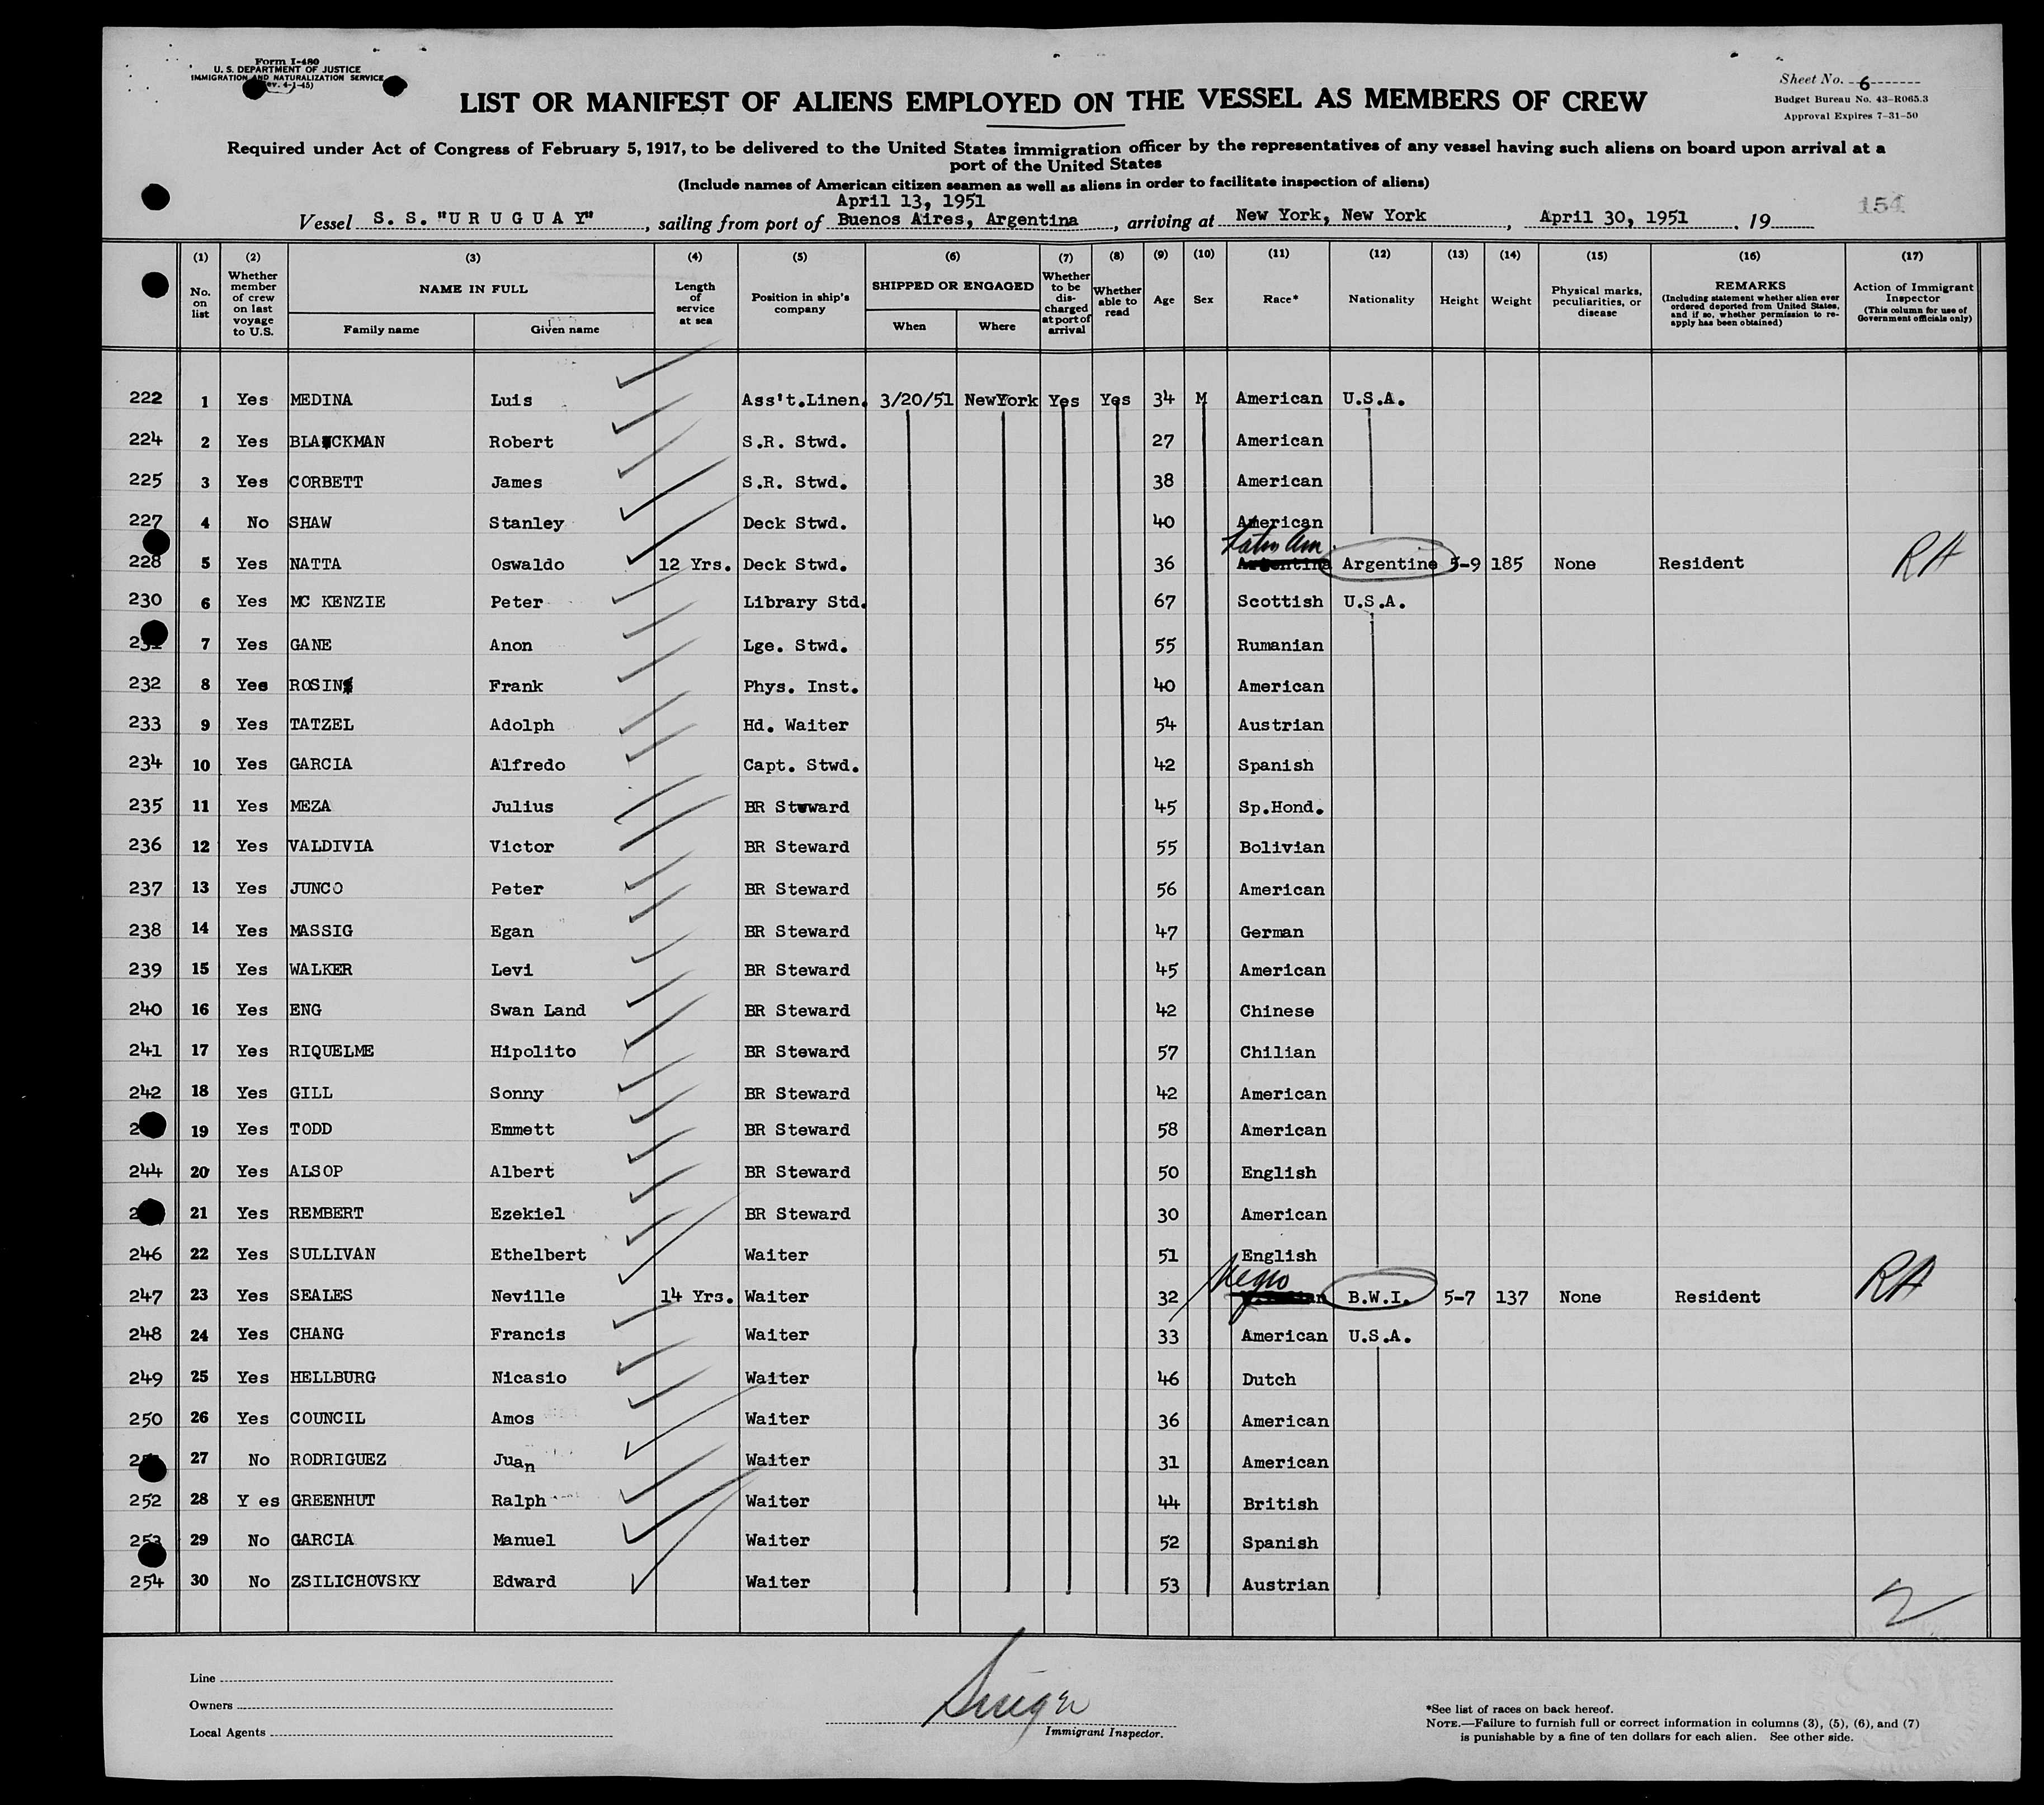 Form I-480
U. S. DEPARTMENT OF JUSTICE
IMMIGRATION AND NATURALIZATION SERVICE
(Rev. 4-1-45)
Sheet No. 6
Budget Bureau No. 43-R065.3
Approval Expires 7-31-50
LIST OR MANIFEST OF ALIENS EMPLOYED ON THE VESSEL AS MEMBERS OF CREW
Required under Act of Congress of February 5, 1917, to be delivered to the United States immigration officer by the representatives of any vessel having such aliens on board upon arrival at a
port of the United States
(Include names of American citizen seamen as well as aliens in order to facilitate inspection of aliens)
April 13, 1951
154
Vessel S. S. "U R U G U A Y", sailing from port of Buenos Aires, Argentina, arriving at New York, New York, April 30, 1951, 19
(1) No. on list
(2) Whether member of crew on last voyage to U.S.
(3) NAME IN FULL Family name Given name
(4) Length of service at sea
(5) Position in ship's company
(6) SHIPPED OR ENGAGED When Where
(7) Whether to be discharged at port of arrival
(8) Whether able to read
(9) Age
(10) Sex
(11) Race*
(12) Nationality
(13) Height
(14) Weight
(15) Physical marks, peculiarities, or disease
(16) REMARKS (Including statement whether alien ever ordered deported from United States, and if so, whether permission to re-apply has been obtained)
(17) Action of Immigrant Inspector (This column for use of Government officials only)
222 1 Yes MEDINA Luis Ass't.Linen. 3/20/51 NewYork Yes Yes 34 M American U.S.A.
224 2 Yes BLACKMAN Robert S.R. Stwd. 27 American
225 3 Yes CORBETT James S.R. Stwd. 38 American
227 4 No SHAW Stanley Deck Stwd. 40 American
Latin Am.
228 5 Yes NATTA Oswaldo 12 Yrs. Deck Stwd. 36 Argentine Argentine 5-9 185 None Resident RH
230 6 Yes MC KENZIE Peter Library Std. 67 Scottish U.S.A.
231 7 Yes GANE Anon Lge. Stwd. 55 Rumanian
232 8 Yes ROSIN Frank Phys. Inst. 40 American
233 9 Yes TATZEL Adolph Hd. Waiter 54 Austrian
234 10 Yes GARCIA Alfredo Capt. Stwd. 42 Spanish
235 11 Yes MEZA Julius BR Steward 45 Sp.Hond.
236 12 Yes VALDIVIA Victor BR Steward 55 Bolivian
237 13 Yes JUNCO Peter BR Steward 56 American
238 14 Yes MASSIG Egan BR Steward 47 German
239 15 Yes WALKER Levi BR Steward 45 American
240 16 Yes ENG Swan Land BR Steward 42 Chinese
241 17 Yes RIQUELME Hipolito BR Steward 57 Chilian
242 18 Yes GILL Sonny BR Steward 42 American
19 Yes TODD Emmett BR Steward 58 American
244 20 Yes ALSOP Albert BR Steward 50 English
21 Yes REMBERT Ezekiel BR Steward 30 American
246 22 Yes SULLIVAN Ethelbert Waiter 51 English
Negro
247 23 Yes SEALES Neville 14 Yrs. Waiter 32 B.W.I. 5-7 137 None Resident RH
248 24 Yes CHANG Francis Waiter 33 American U.S.A.
249 25 Yes HELLBURG Nicasio Waiter 46 Dutch
250 26 Yes COUNCIL Amos Waiter 36 American
27 No RODRIGUEZ Juan Waiter 31 American
252 28 Y es GREENHUT Ralph Waiter 44 British
253 29 No GARCIA Manuel Waiter 52 Spanish
254 30 No ZSILICHOVSKY Edward Waiter 53 Austrian
2
Line
Owners
Local Agents
Immigrant Inspector.
*See list of races on back hereof.
NOTE.—Failure to furnish full or correct information in columns (3), (5), (6), and (7)
is punishable by a fine of ten dollars for each alien. See other side.